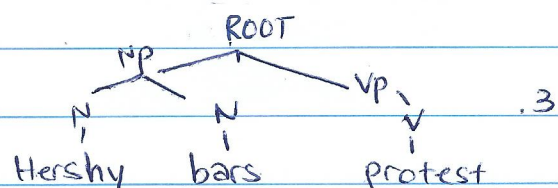 ROOT
NP
VP
N N V .3
Hershy bars protest